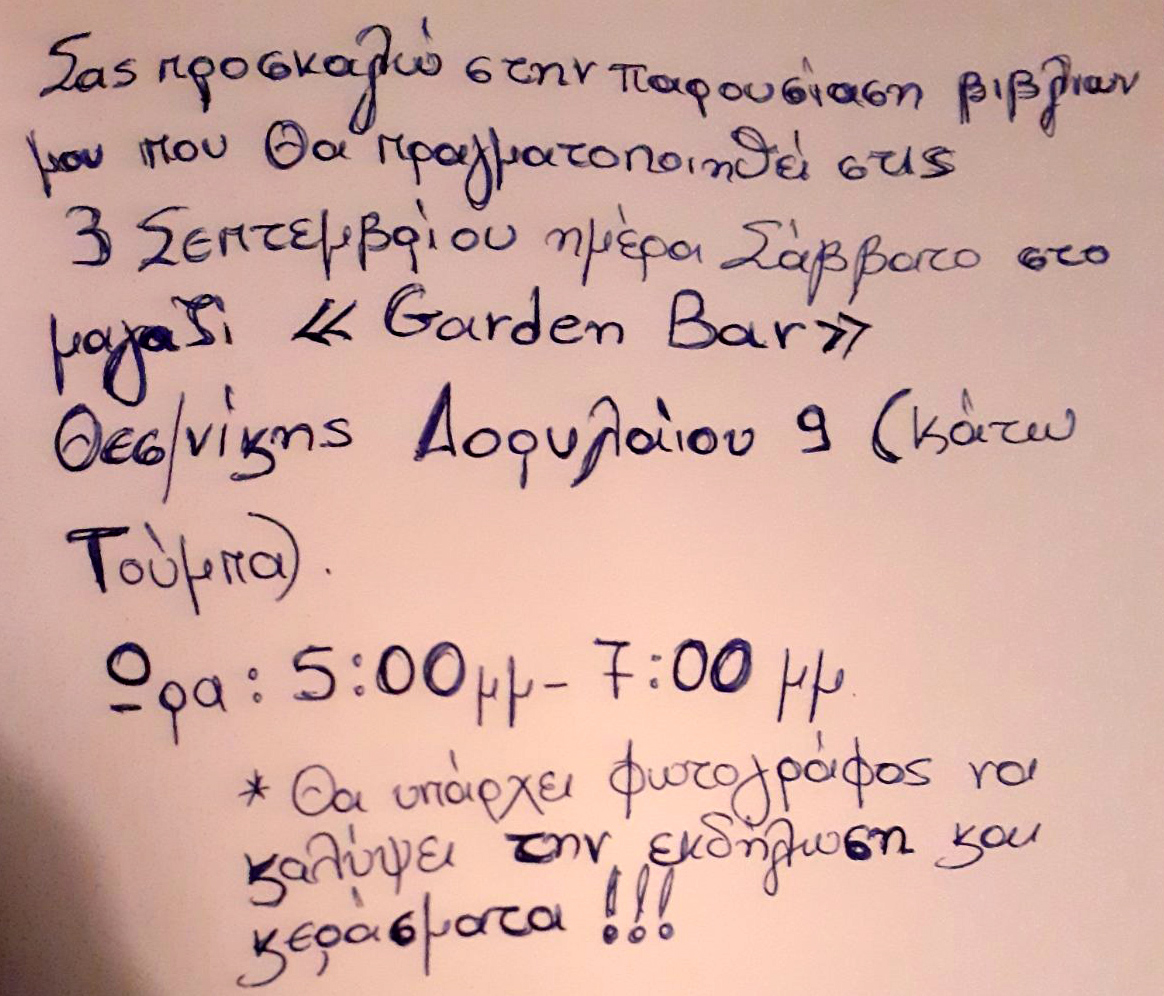 Σας προσκαλώ στην παρουσίαση βιβλίων
μου που θα πραγματοποιηθεί στις
3 Σεπτεμβρίου ημέρα Σάββατο στο
μαγαζί « Garden Bar»
Θεσ/νίκης Δορυλαίου 9 (κάτω
Τούμπα).
Ώρα: 5:00μμ- 7:00 μμ.
* Θα υπάρχει φωτογράφος να
καλύψει την εκδήλωση και
κεράσματα !!!